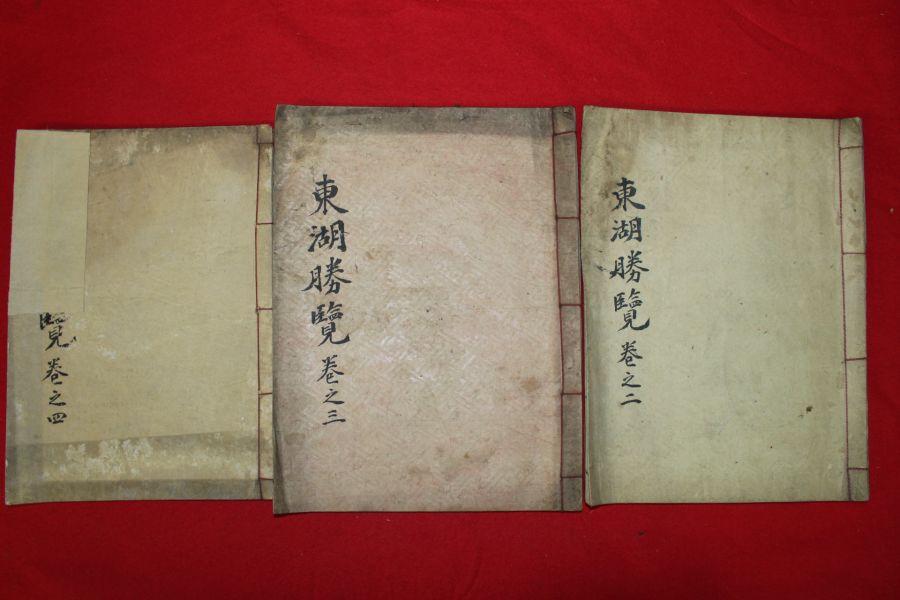 東湖勝覽卷之二
東湖勝覽卷之三
覽卷之四